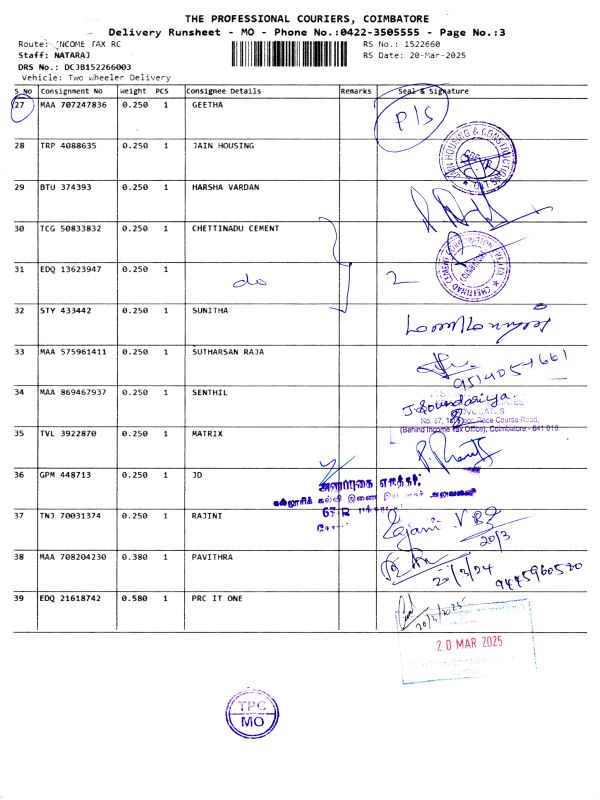 THE PROFESSIONAL COURIERS, COIMBATORE
Delivery Runsheet - MO - Phone No.:0422-3505555 - Page No.:3
Route: INCOME TAX RC
RS No.: 1522660
Staff: NATARAJ
RS Date: 20-Mar-2025
DRS No.: DCJB152266003
Vehicle: Two Wheeler Delivery
S No Consignment No Weight PCS Consignee Details Remarks Seal & Signature
27 MAA 707247836 0.250 1 GEETHA P/S
28 TRP 4088635 0.250 1 JAIN HOUSING
JAIN HOUSING & CONSTRUCTIONS LTD
29 BTU 374393 0.250 1 HARSHA VARDAN
30 TCG 50833832 0.250 1 CHETTINADU CEMENT
31 EDQ 13623947 0.250 1 do 2
32 STY 433442 0.250 1 SUNITHA
33 MAA 575961411 0.250 1 SUTHARSAN RAJA
34 MAA 869467937 0.250 1 SENTHIL
J. Soundariya
ADVOCATES
Race Course Road,
(Behind Income Tax Office), Coimbatore - 641 018.
35 TVL 3922870 0.250 1 MATRIX
36 GPM 448713 0.250 1 JD
37 TNJ 70031374 0.250 1 RAJINI
Rajani V
20/3
38 MAA 708204230 0.380 1 PAVITHRA
20/3/24 9445960520
39 EDQ 21618742 0.580 1 PRC IT ONE
20/3/2025
20 MAR 2025
TPC
MO